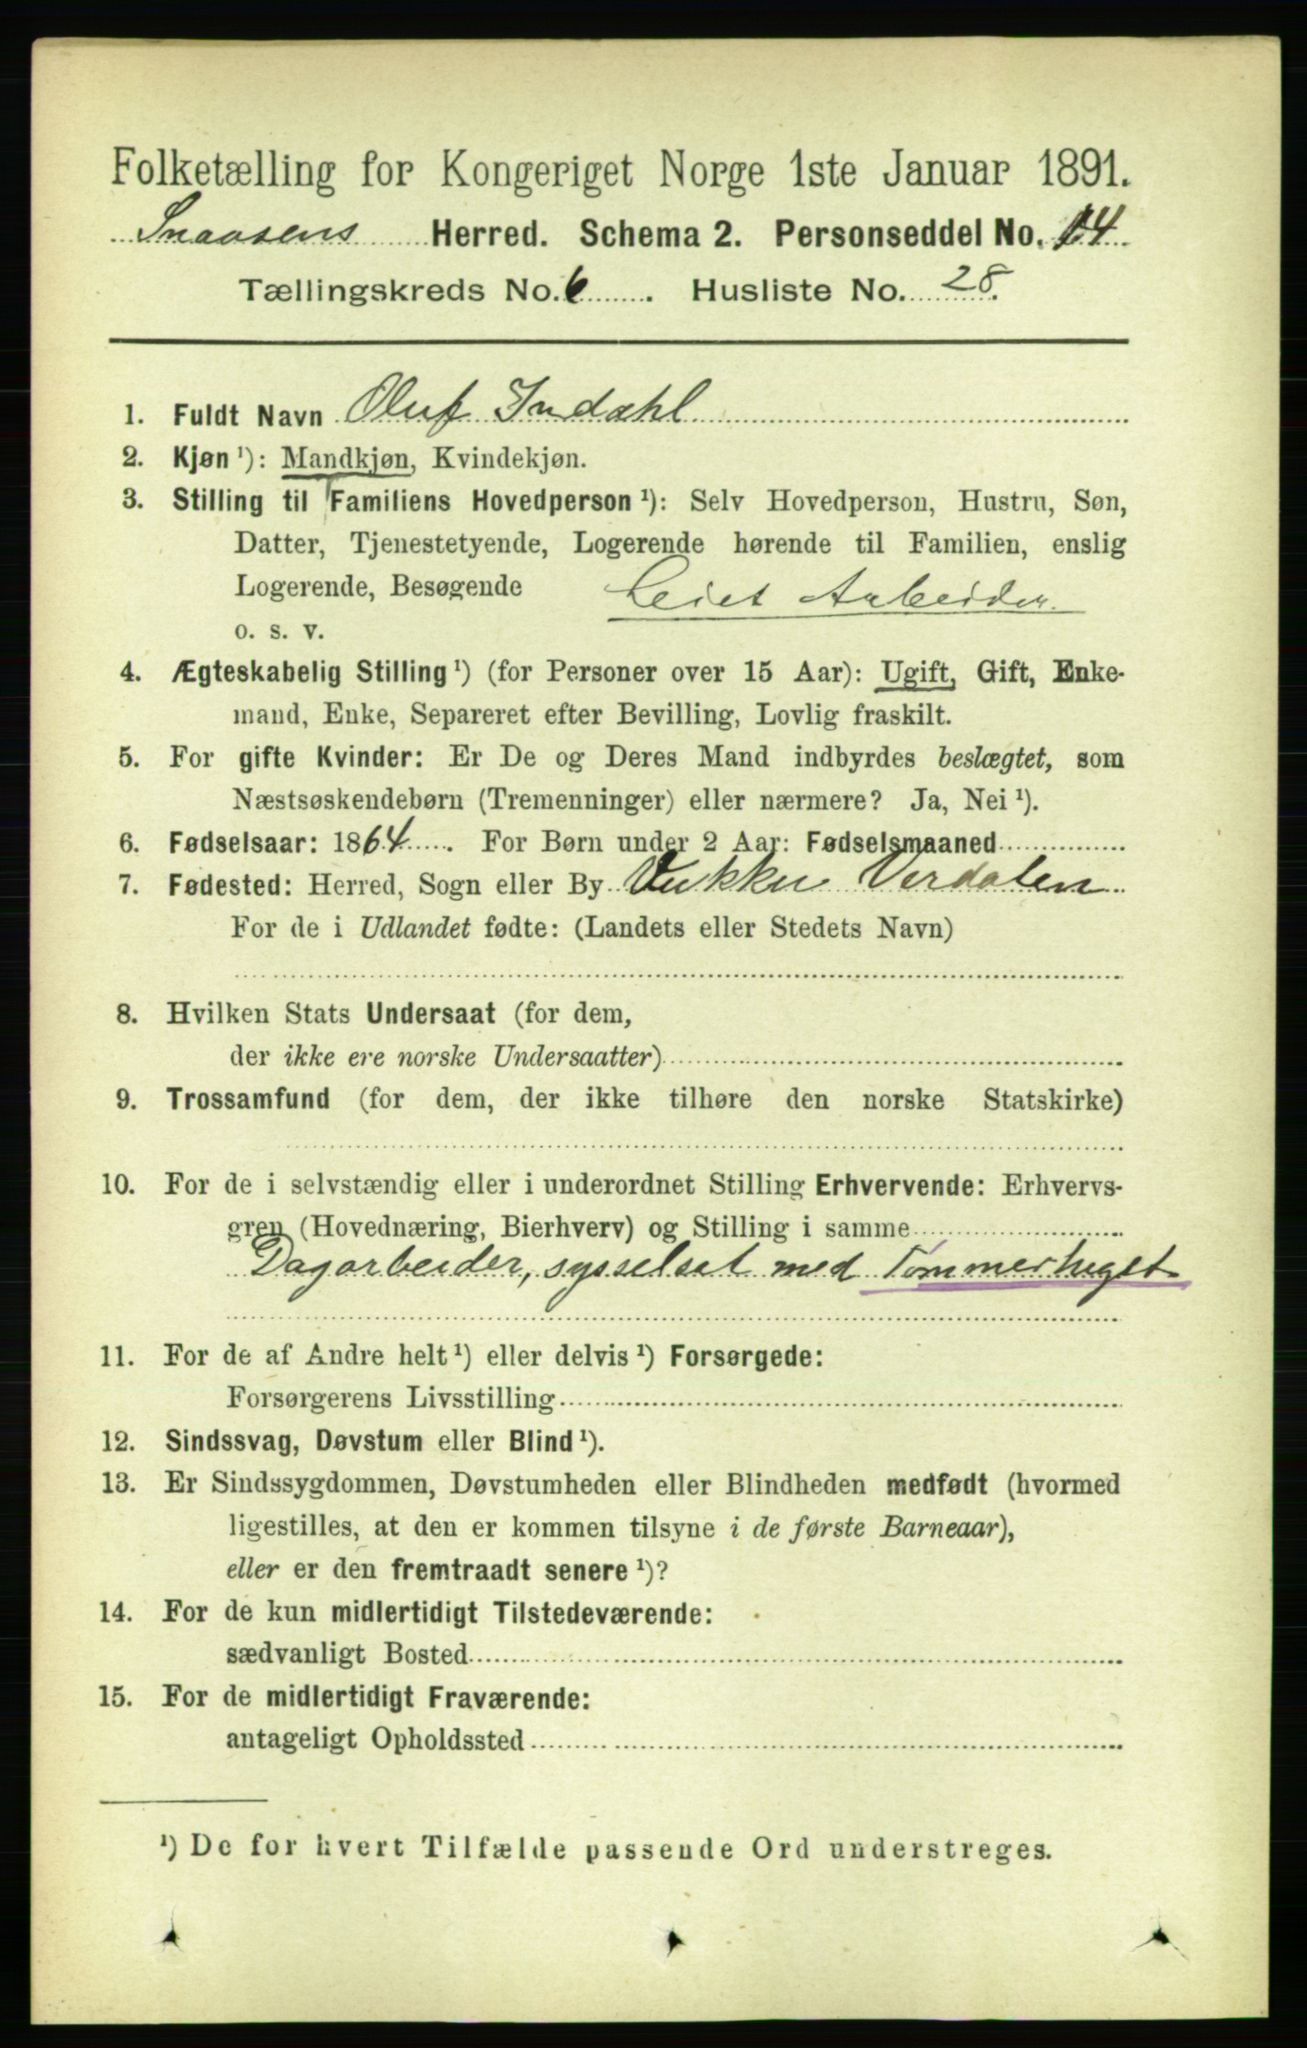 Folketælling for Kongeriget Norge 1ste Januar 1891.
Snaasens Herred. Schema 2. Personseddel No. 14
Tællingskreds No. 6. Husliste No. 28.
1. Fuldt Navn Oluf Indahl
2. Kjøn ¹): Mandkjøn, Kvindekjøn.
3. Stilling til Familiens Hovedperson ¹): Selv Hovedperson, Hustru, Søn,
Datter, Tjenestetyende, Logerende hørende til Familien, enslig
Logerende, Besøgende Leiet Arbeider
o. s. v.
4. Ægteskabelig Stilling ¹) (for Personer over 15 Aar): Ugift, Gift, Enke-
mand, Enke, Separeret efter Bevilling, Lovlig fraskilt.
5. For gifte Kvinder: Er De og Deres Mand indbyrdes beslægtet, som
Næstsøskendebørn (Tremenninger) eller nærmere? Ja, Nei ¹).
6. Fødselsaar: 1864. For Børn under 2 Aar: Fødselsmaaned
7. Fødested: Herred, Sogn eller By Vukku Verdalen
For de i Udlandet fødte: (Landets eller Stedets Navn)
8. Hvilken Stats Undersaat (for dem,
der ikke ere norske Undersaatter)
9. Trossamfund (for dem, der ikke tilhøre den norske Statskirke)
10. For de i selvstændig eller i underordnet Stilling Erhvervende: Erhvervs-
gren (Hovednæring, Bierhverv) og Stilling i samme
Dagarbeider, sysselsat med Tømmerhugst
11. For de af Andre helt ¹) eller delvis ¹) Forsørgede:
Forsørgerens Livsstilling
12. Sindssvag, Døvstum eller Blind ¹).
13. Er Sindssygdommen, Døvstumheden eller Blindheden medfødt (hvormed
ligestilles, at den er kommen tilsyne i de første Barneaar),
eller er den fremtraadt senere ¹)?
14. For de kun midlertidigt Tilstedeværende:
sædvanligt Bosted
15. For de midlertidigt Fraværende:
antageligt Opholdssted
¹) De for hvert Tilfælde passende Ord understreges.